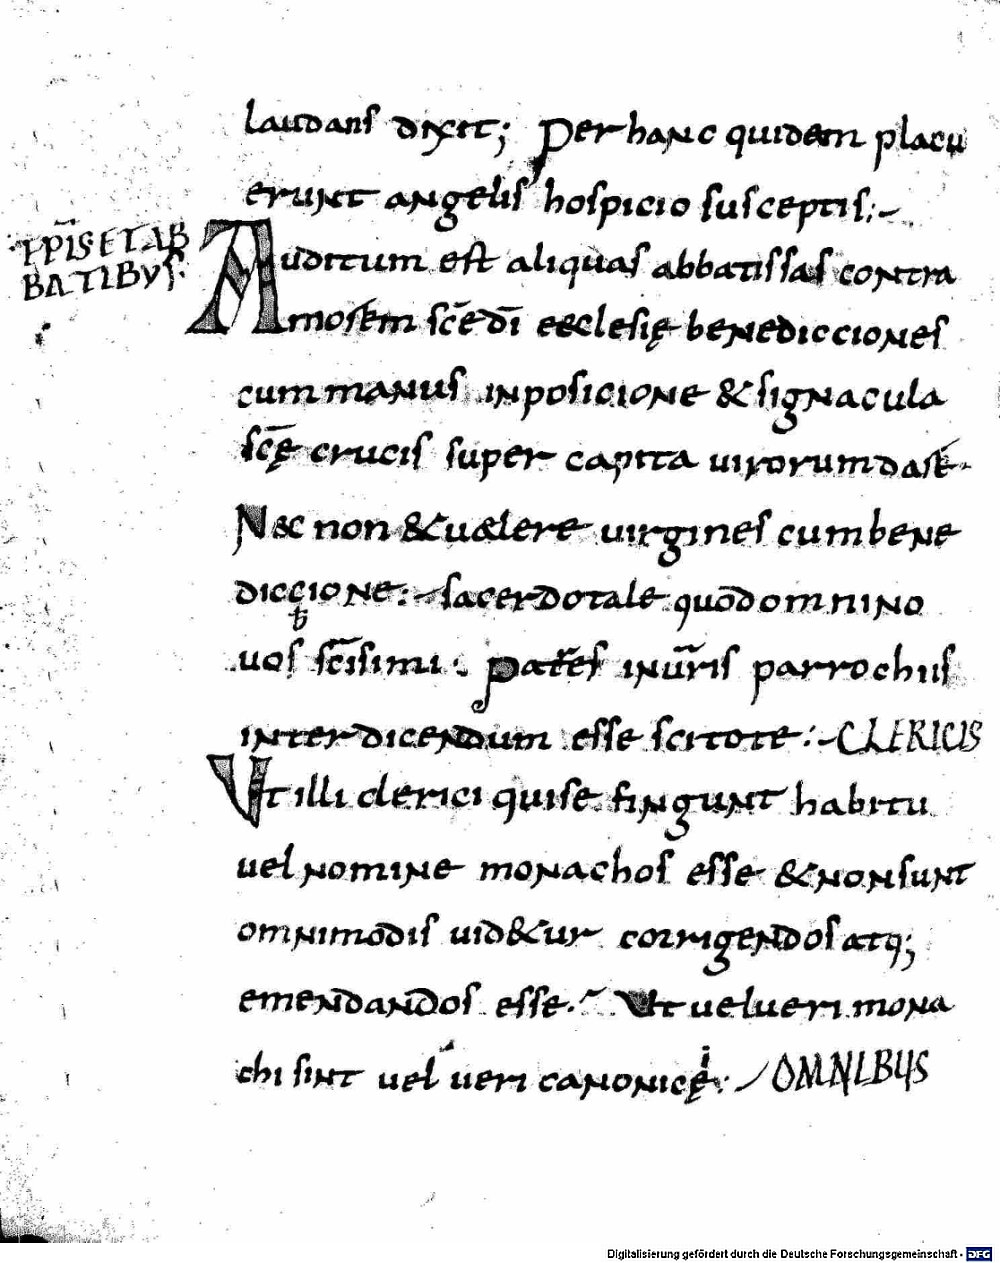 laudans dixit; Per hanc quidem placu
erunt angelis hospicio susceptis;~
·EPĪS ET AB
BATIBVS·
Auditum est aliquas abbatissas contra
morem scē dī ecclesię benedicciones
cum manus inposicione & signacula
scę̄ crucis super capita uirorum dare·
Nec non & uelere uirgines cum bene
diccione:~ sacerdotale quōd omnino
uos scīsimi: patres in ur̄is parrochiis
interdicendum esse scitote:~ CLERICIS
Vt illi clerici qui se fingunt habitu
uel nomine monachos esse & non sunt
omnimodis uid&ur corrigendos atq;
emendandos esse· Vt uel ueri mona
chi sint uel ueri canonicę: OMNIBUS
Digitalisierung gefördert durch die Deutsche Forschungsgemeinschaft - DFG